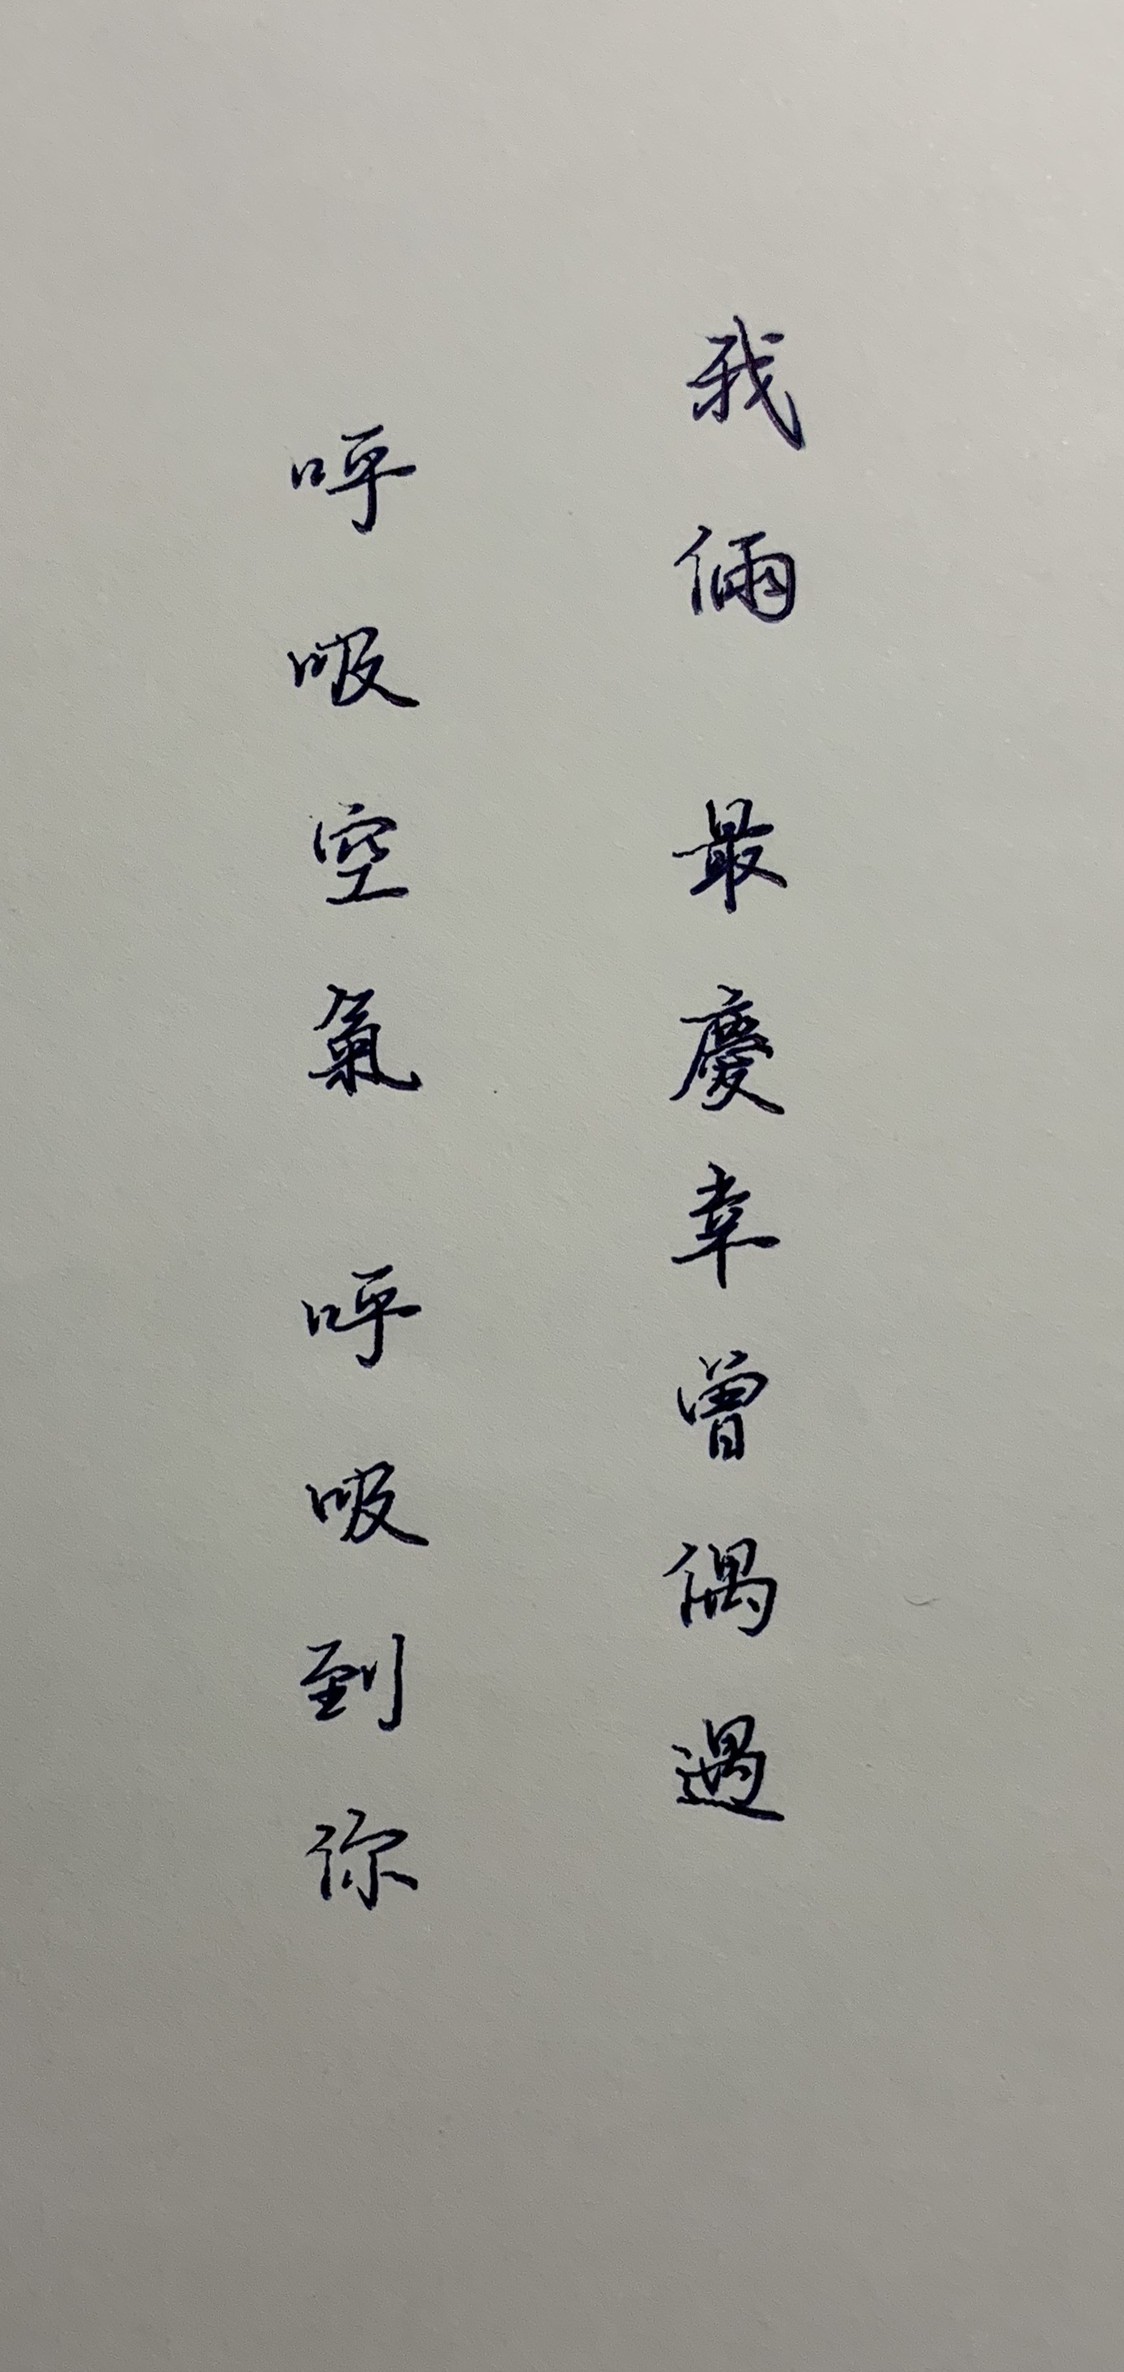 我倆 最慶幸曾偶遇
呼吸空氣 呼吸到你